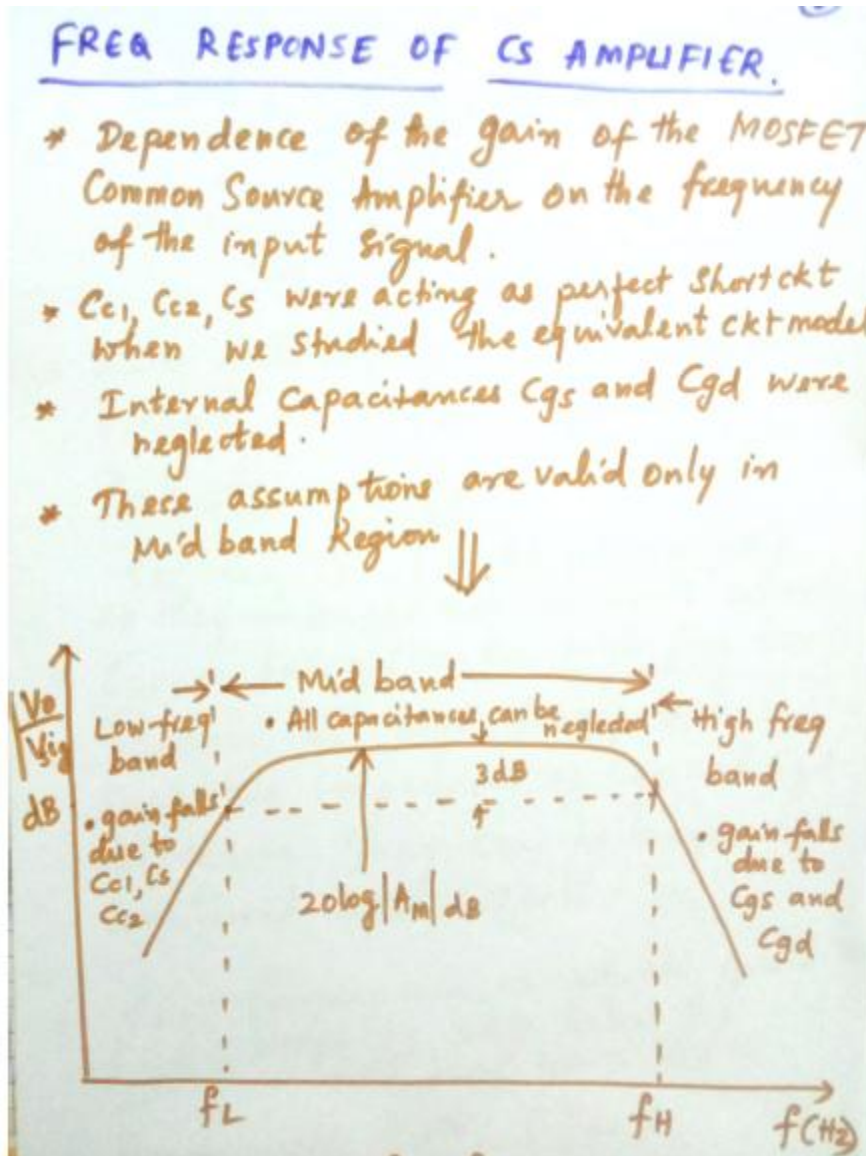 FREQ RESPONSE OF CS AMPLIFIER.
* Dependence of the gain of the MOSFET
Common Source Amplifier on the frequency
of the input signal.
* Cc1, Cc2, Cs were acting as perfect Shortckt
when we studied the equivalent ckt model
* Internal Capacitances Cgs and Cgd were
neglected.
* These assumptions are valid only in
Mid band Region
Mid band
|Vo
Vsig
dB
Low-freq
band
• All capacitances can be
neglected
High freq
band
3dB
• gain falls
due to
Cc1, Cs
Cc2
20log|AM| dB
• gain falls
due to
Cgs and
Cgd
fL
fH
f(Hz)